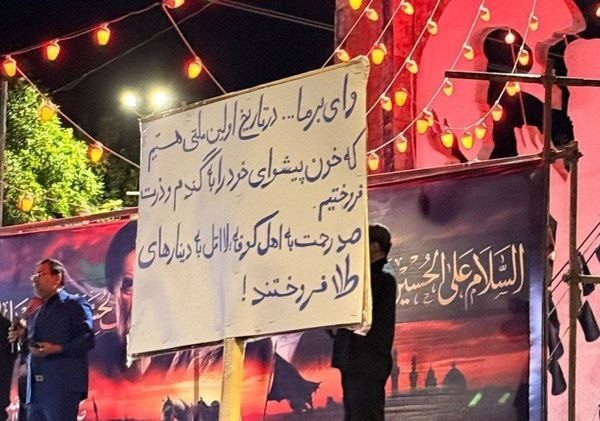 وای بر ما... در تاریخ اولین ملتی هستیم
که خون پیشوای خود را به گندم و ذرت
فروختیم
صد رحمت به اهل کوفه، لااقل به دینارهای
طلا فروختند!
السلام علی الحسین